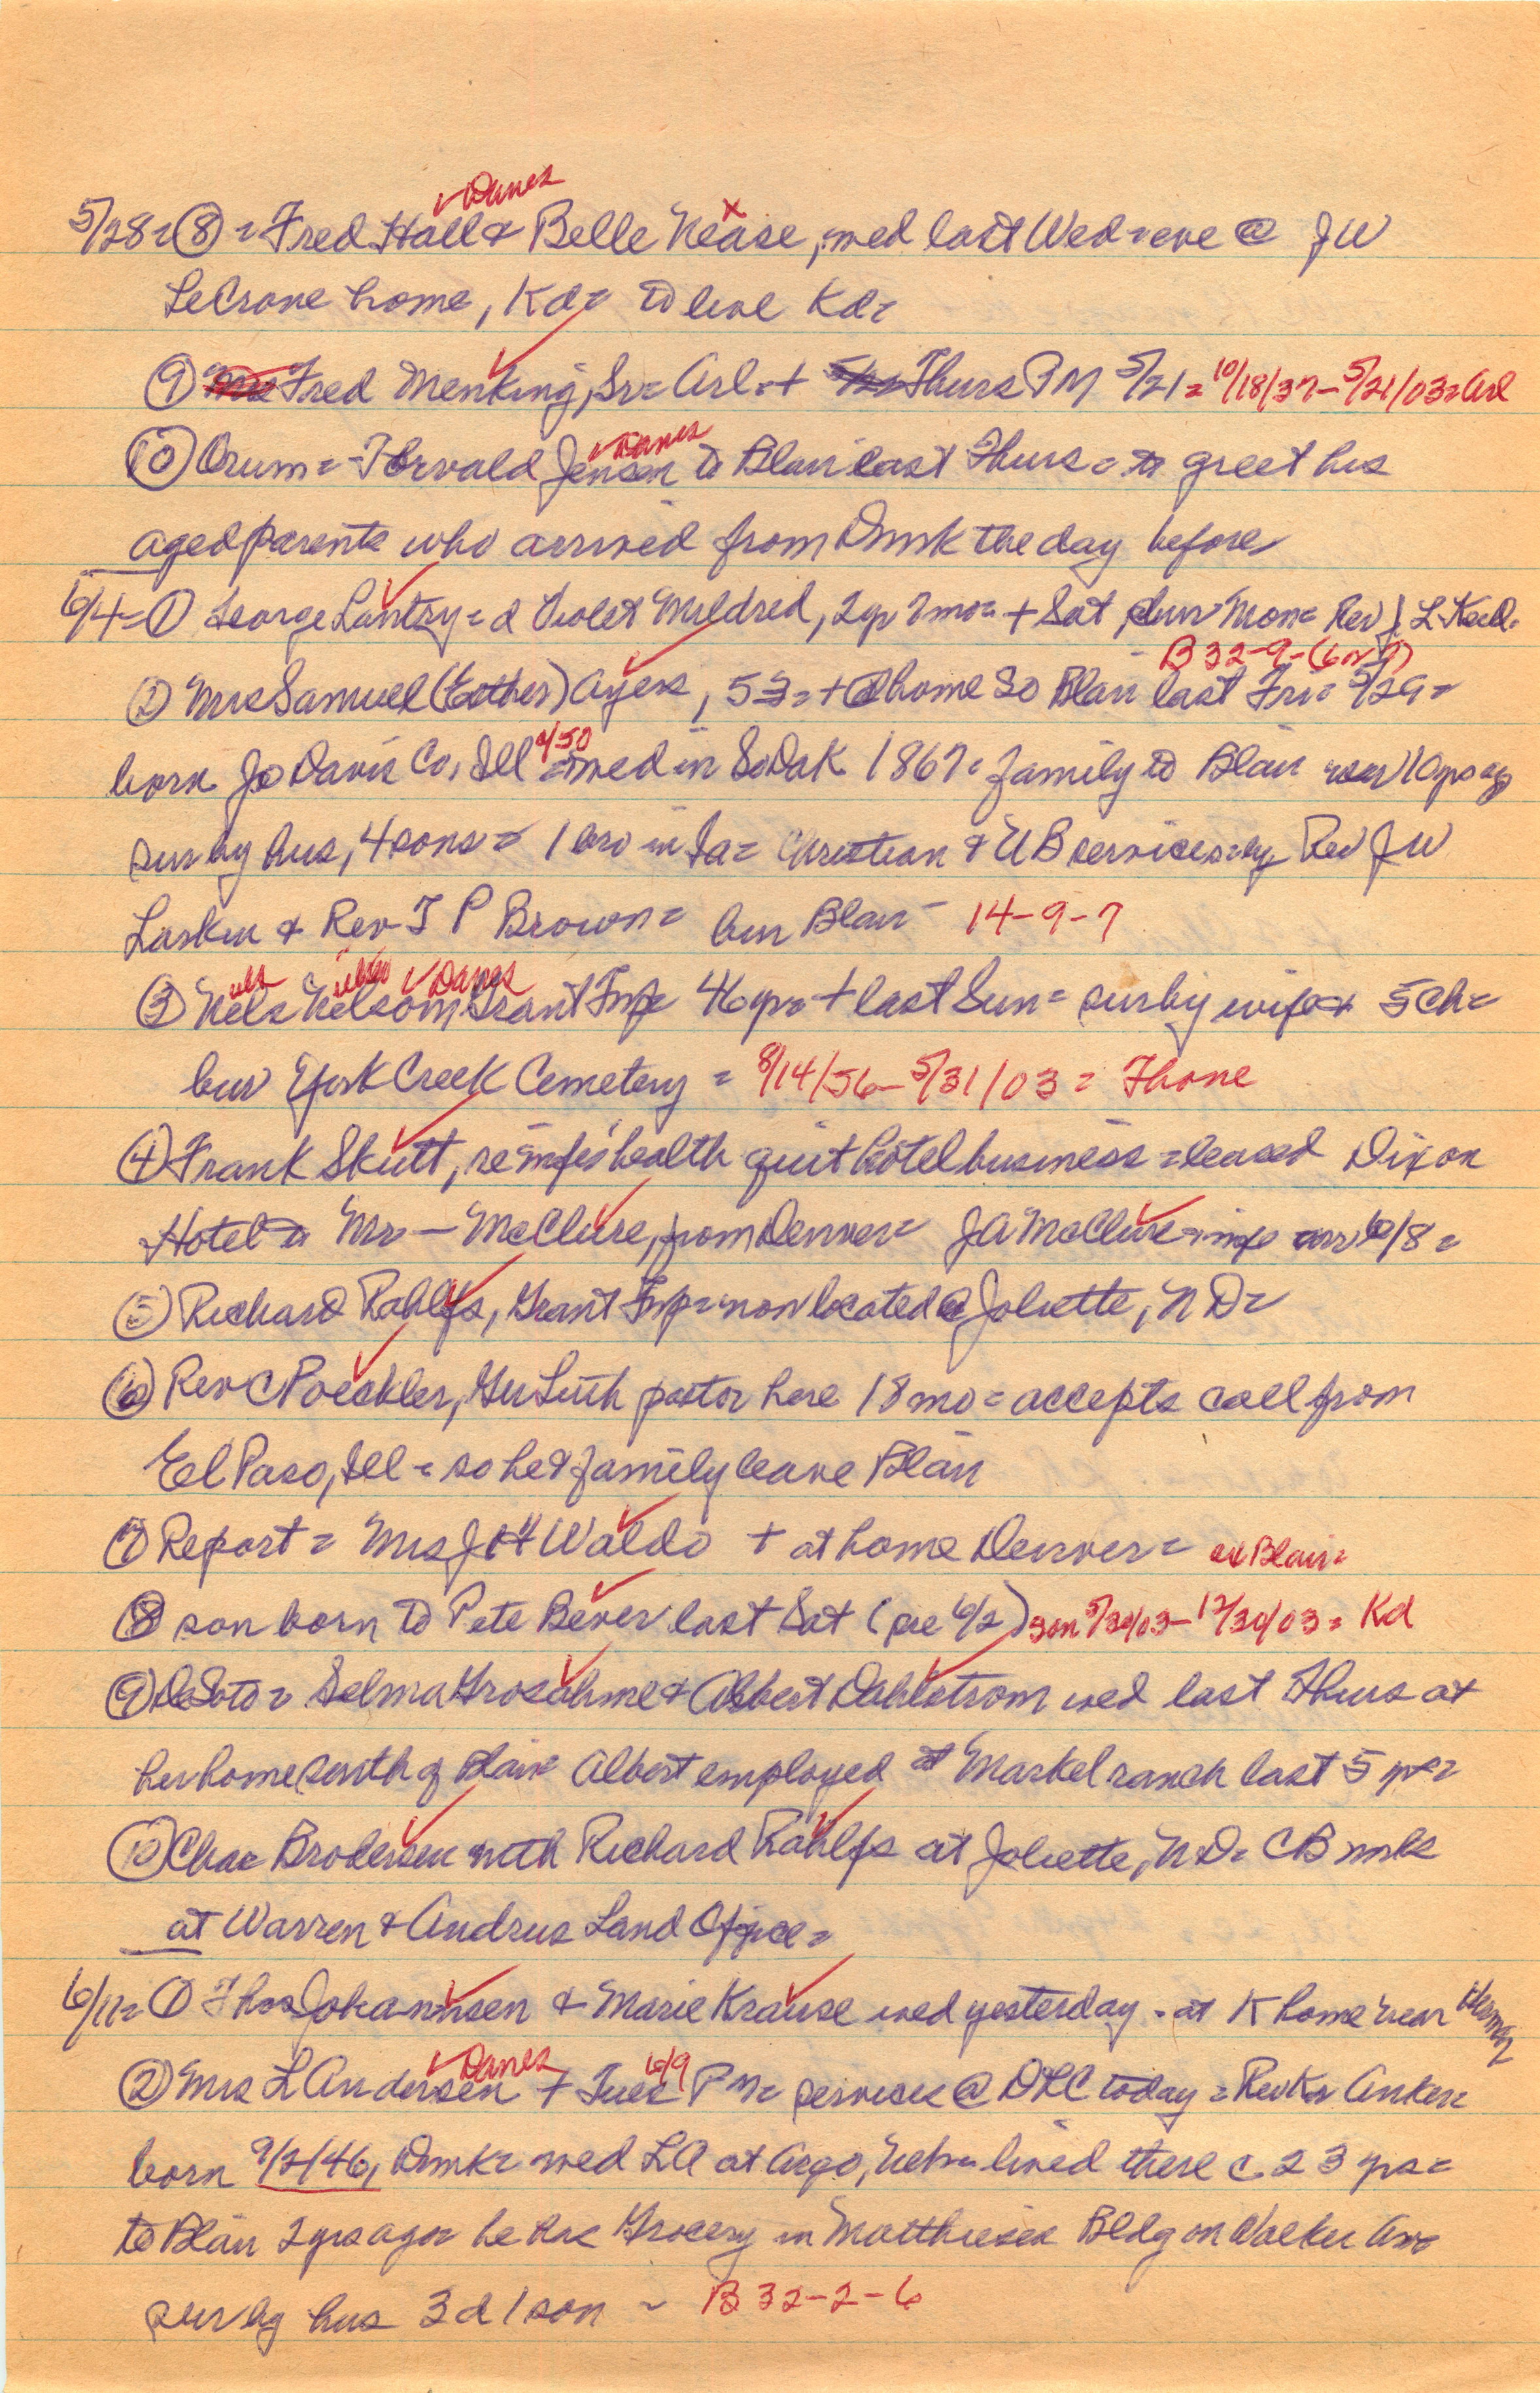 ✓Danes x
5/28= ⑧ = Fred Hall & Belle Nease, wed last Wed eve @ JW
LeCrone home, Kd= to live Kd=
⑨ Fred Menking, Sr= Arl.+ Thurs PM 5/21= 10/18/37-5/21/03=Arl
✓Danes
⑩ Orum= Torvald Jensen to Blair last Thurs= to greet his
aged parents who arrived from Dnmk the day before
6/4= ① George Lantry= d Violet Mildred, 2yr 7mo= + Sat, bur Mon= Rev J L
B 32-9-(6 or 7)
② Mrs Samuel (Esther) Ayers, 53=+@home So Blair last Fri= 5/29=
4/50
born Jo Davis Co, Ill= wed in SoDak 1867= family to Blair over 10 yrs ago
sur by hus, 4 sons= 1 bro in Ia= Christian & UB services by Rev JW
Larkin & Rev T P Brown= bur Blair - 14-9-7
✓Danes
③ Nels Nelson Grant Twp= 46 yrs + last Sun= sur by wife & 5 ch=
bur York Creek Cemetery = 8/14/56-5/31/03= Thone
④ Frank Skutt, re wife's health quit hotel business = leased Dixon
Hotel to Mr — McClure, from Denver= JA McClure = wife arr 6/8=
⑤ Richard Rahlfs, Grant Twp= now located @ Joliette, ND=
⑥ Rev C Poeckler, Ger Luth pastor here 18 mo = accepts call from
El Paso, Ill = so he & family leave Blair
⑦ Report = Mrs J H Waldo + at home Denver= ex Blair=
⑧ son born to Pete Bever last Sat (pre 6/2) son 5/30/03-12/30/03= Kd
⑨ DeSoto= Selma Grosohme & Albert Dahlstrom wed last Thurs at
her home south of Blair= Albert employed at Markel ranch last 5 yrs=
⑩ Chas Brodersen with Richard Rahlfs at Joliette, ND= CB wrks
at Warren & Andrus Land Office=
6/11= ① Thos Johannsen & Marie Krause wed yesterday - at K home near Herman
✓Danes 6/9
② Mrs L Andersen + Tues PM= services @ DLC today = Rev Kr Anker=
born 9/2/46, Dnmk= wed LA at Argo, Neb= lived there c 23 yrs=
to Blair 2 yrs ago= he has Grocery in Matthiesen Bldg on Walker Ave
sur by hus 3 d 1 son ~ B 32-2-6